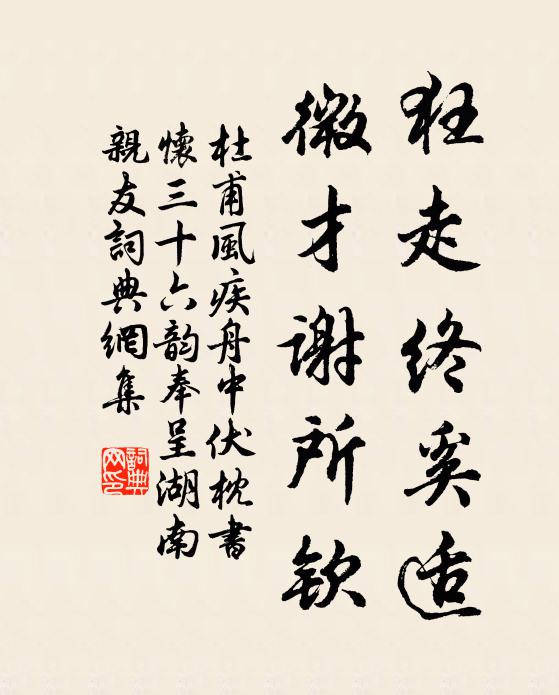 狂走終奚适
微才謝所欽
杜甫風疾舟中伏枕書
懷三十六韵奉呈湖南
親友詞典網集
詞典
网印